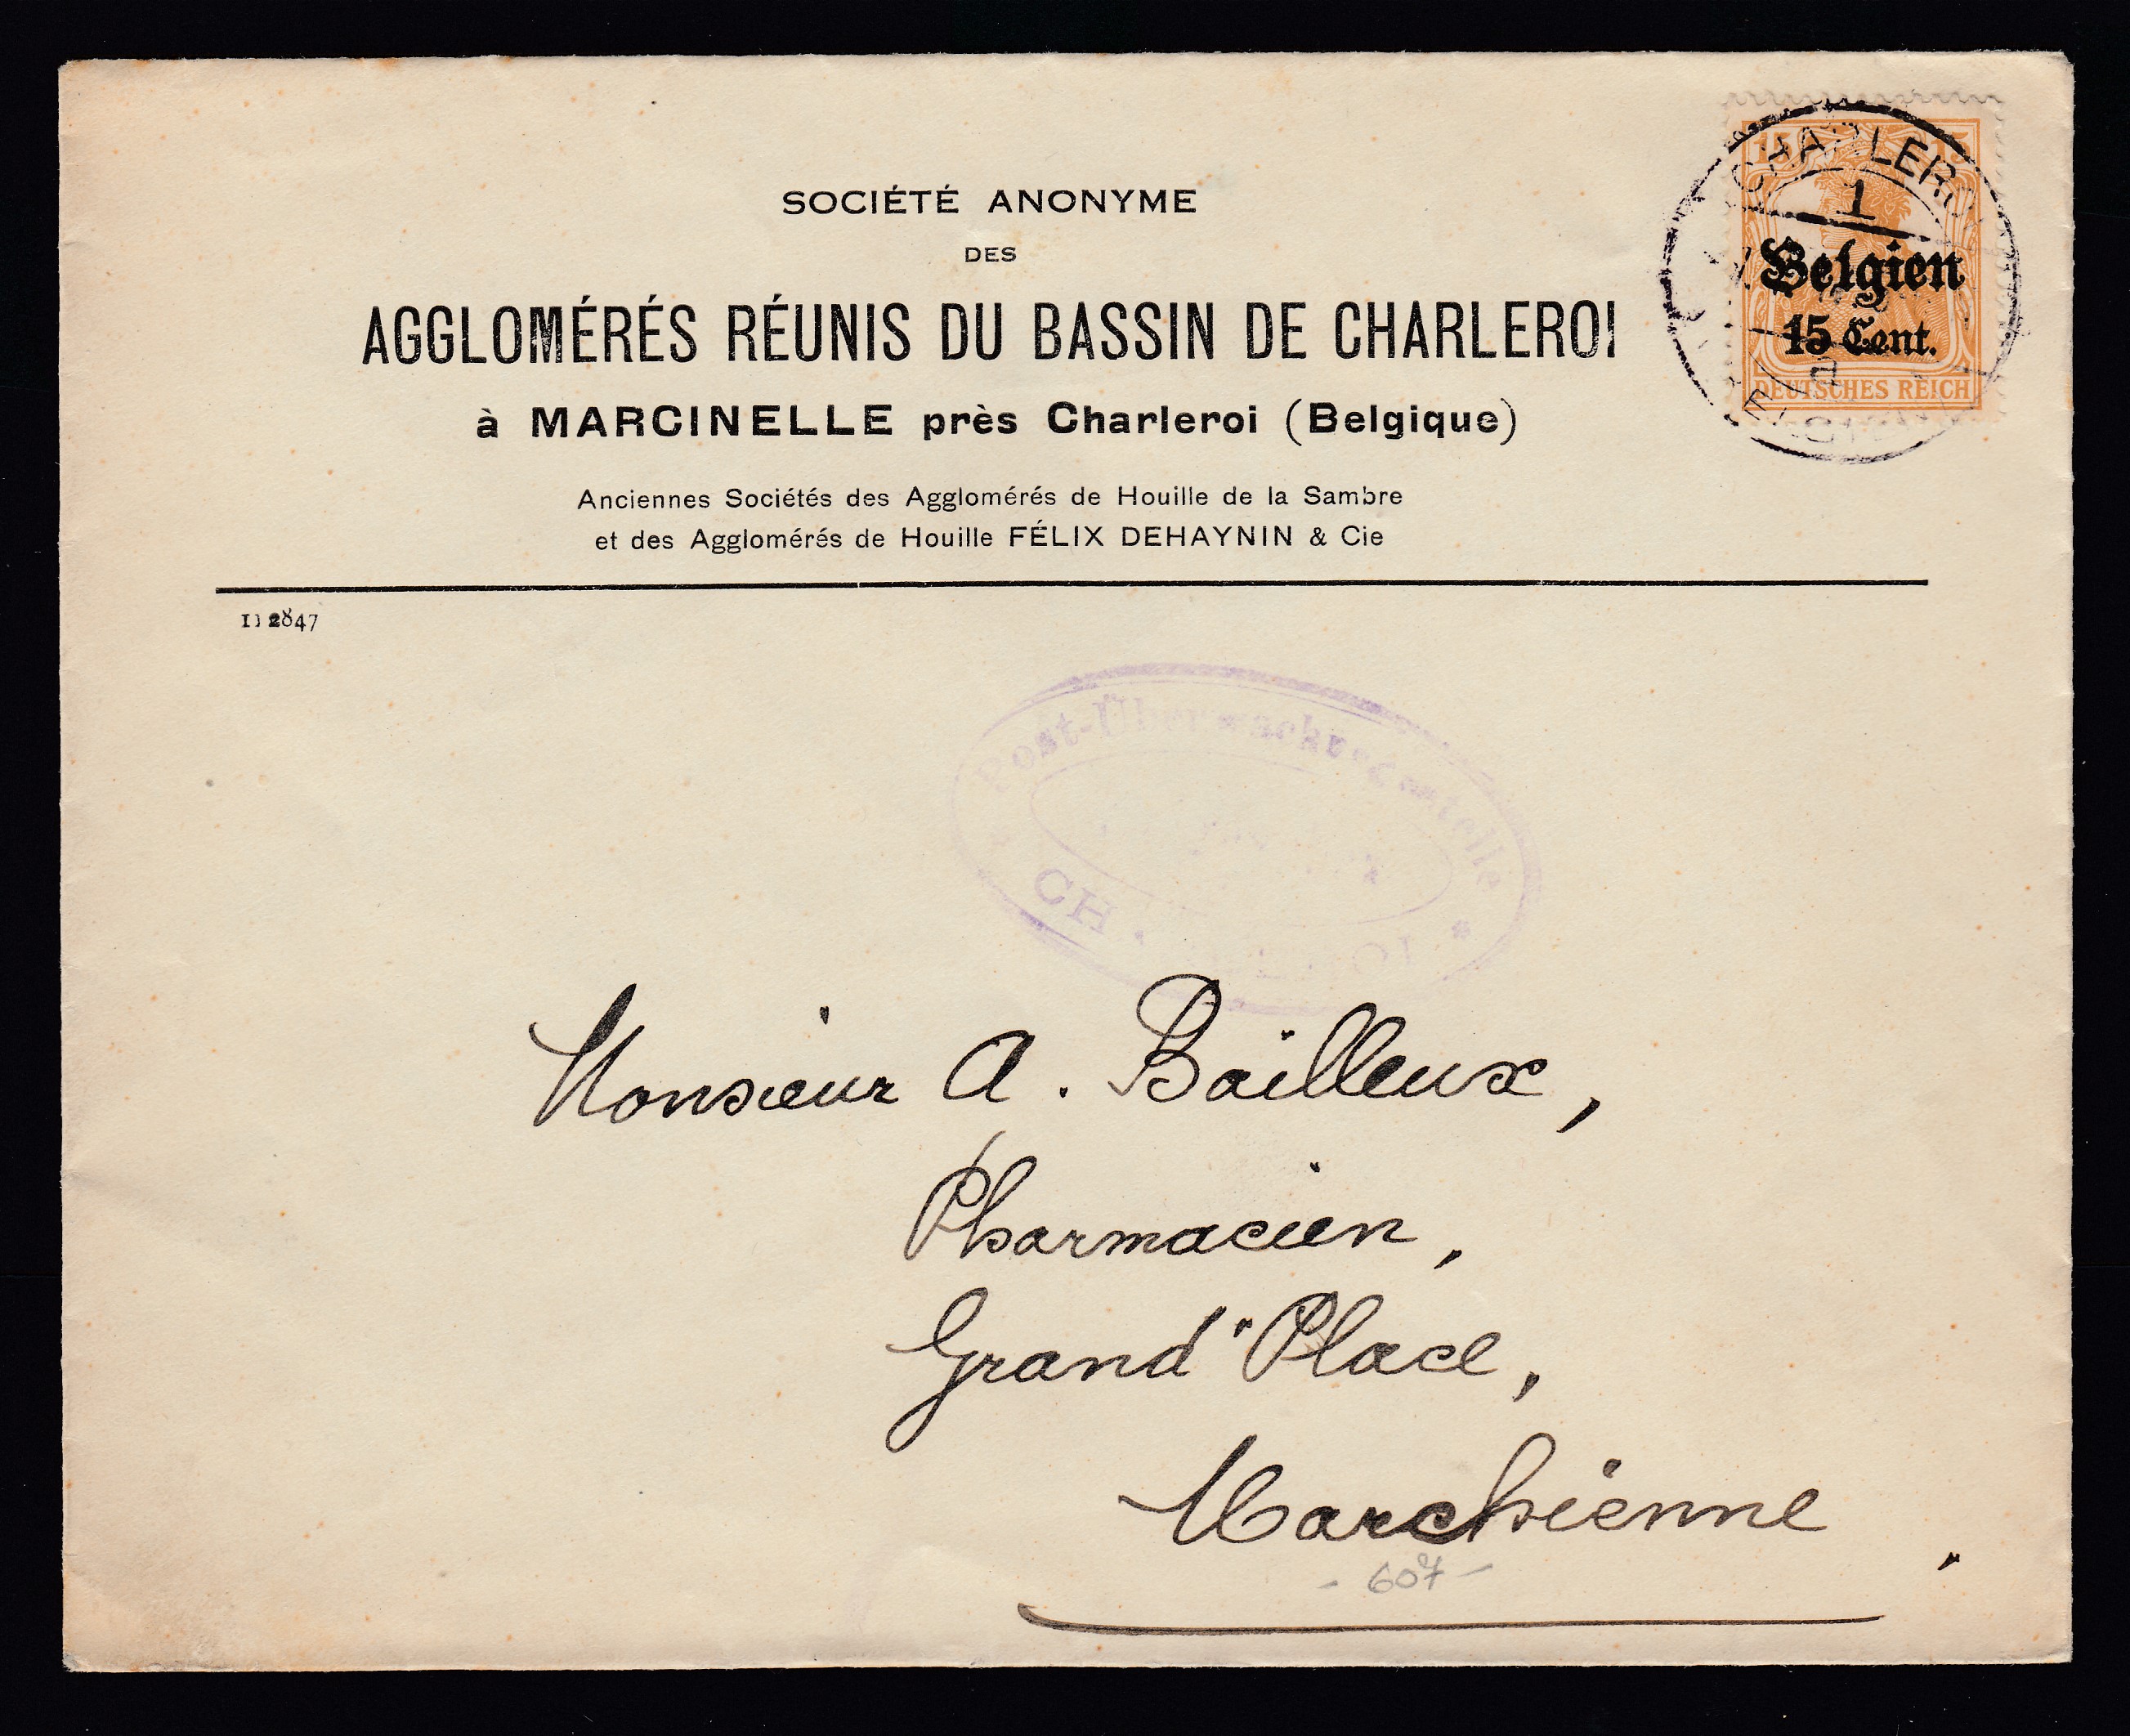 SOCIÉTÉ ANONYME
DES
AGGLOMÉRÉS RÉUNIS DU BASSIN DE CHARLEROI
à MARCINELLE près Charleroi (Belgique)
Anciennes Sociétés des Agglomérés de Houille de la Sambre
et des Agglomérés de Houille FÉLIX DEHAYNIN & Cie
15 15
CHARLEROI
1
Belgien
15 Cent.
DEUTSCHES REICH
2847
Post-Überwachungsstelle
CHARLEROI
Monsieur A. Bailleux,
Pharmacien,
Grand'Place,
Marchienne,
- 607 -